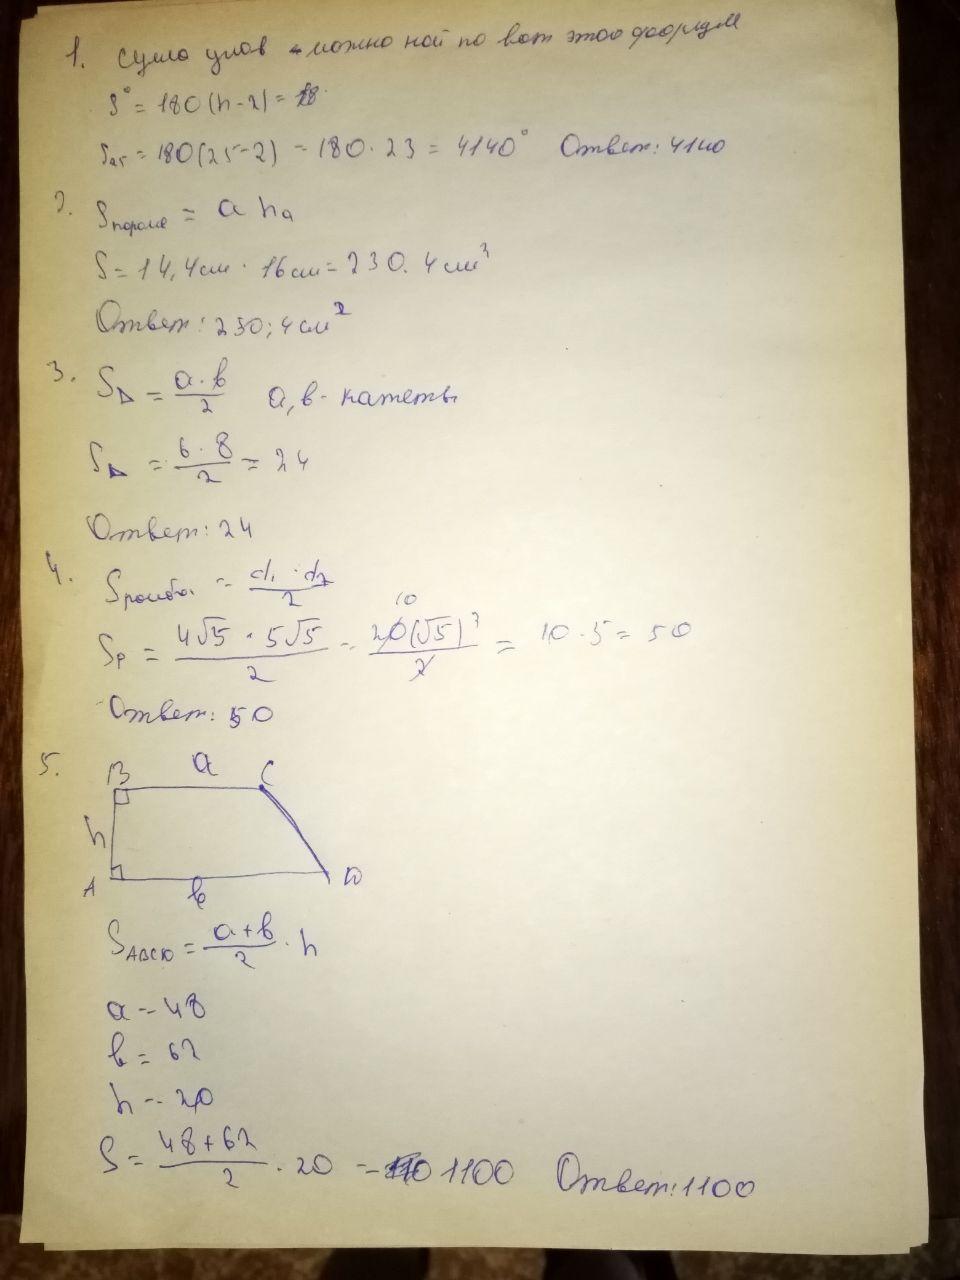 1. Сумма углов можно най по вот этой формуле
S° = 180(n-2) =
S₂₅ = 180(25-2) = 180·23 = 4140° Ответ: 4140
2. Sпорале = a hₐ
S = 14,4см · 16см = 230.4см²
Ответ: 230,4см²
3. S△ = a·b/2 a, b - катеты
S△ = 6·8/2 = 24
Ответ: 24
4. Sромба = d₁·d₂/2
Sр = 4√5 · 5√5/2 = 20(√5)²/2 = 10·5 = 50
10
Ответ: 50
5. B a C
h
A b D
SABCD = a+b/2 · h
a - 48
b = 62
h - 20
S = 48+62/2 · 20 = 1100 Ответ: 1100